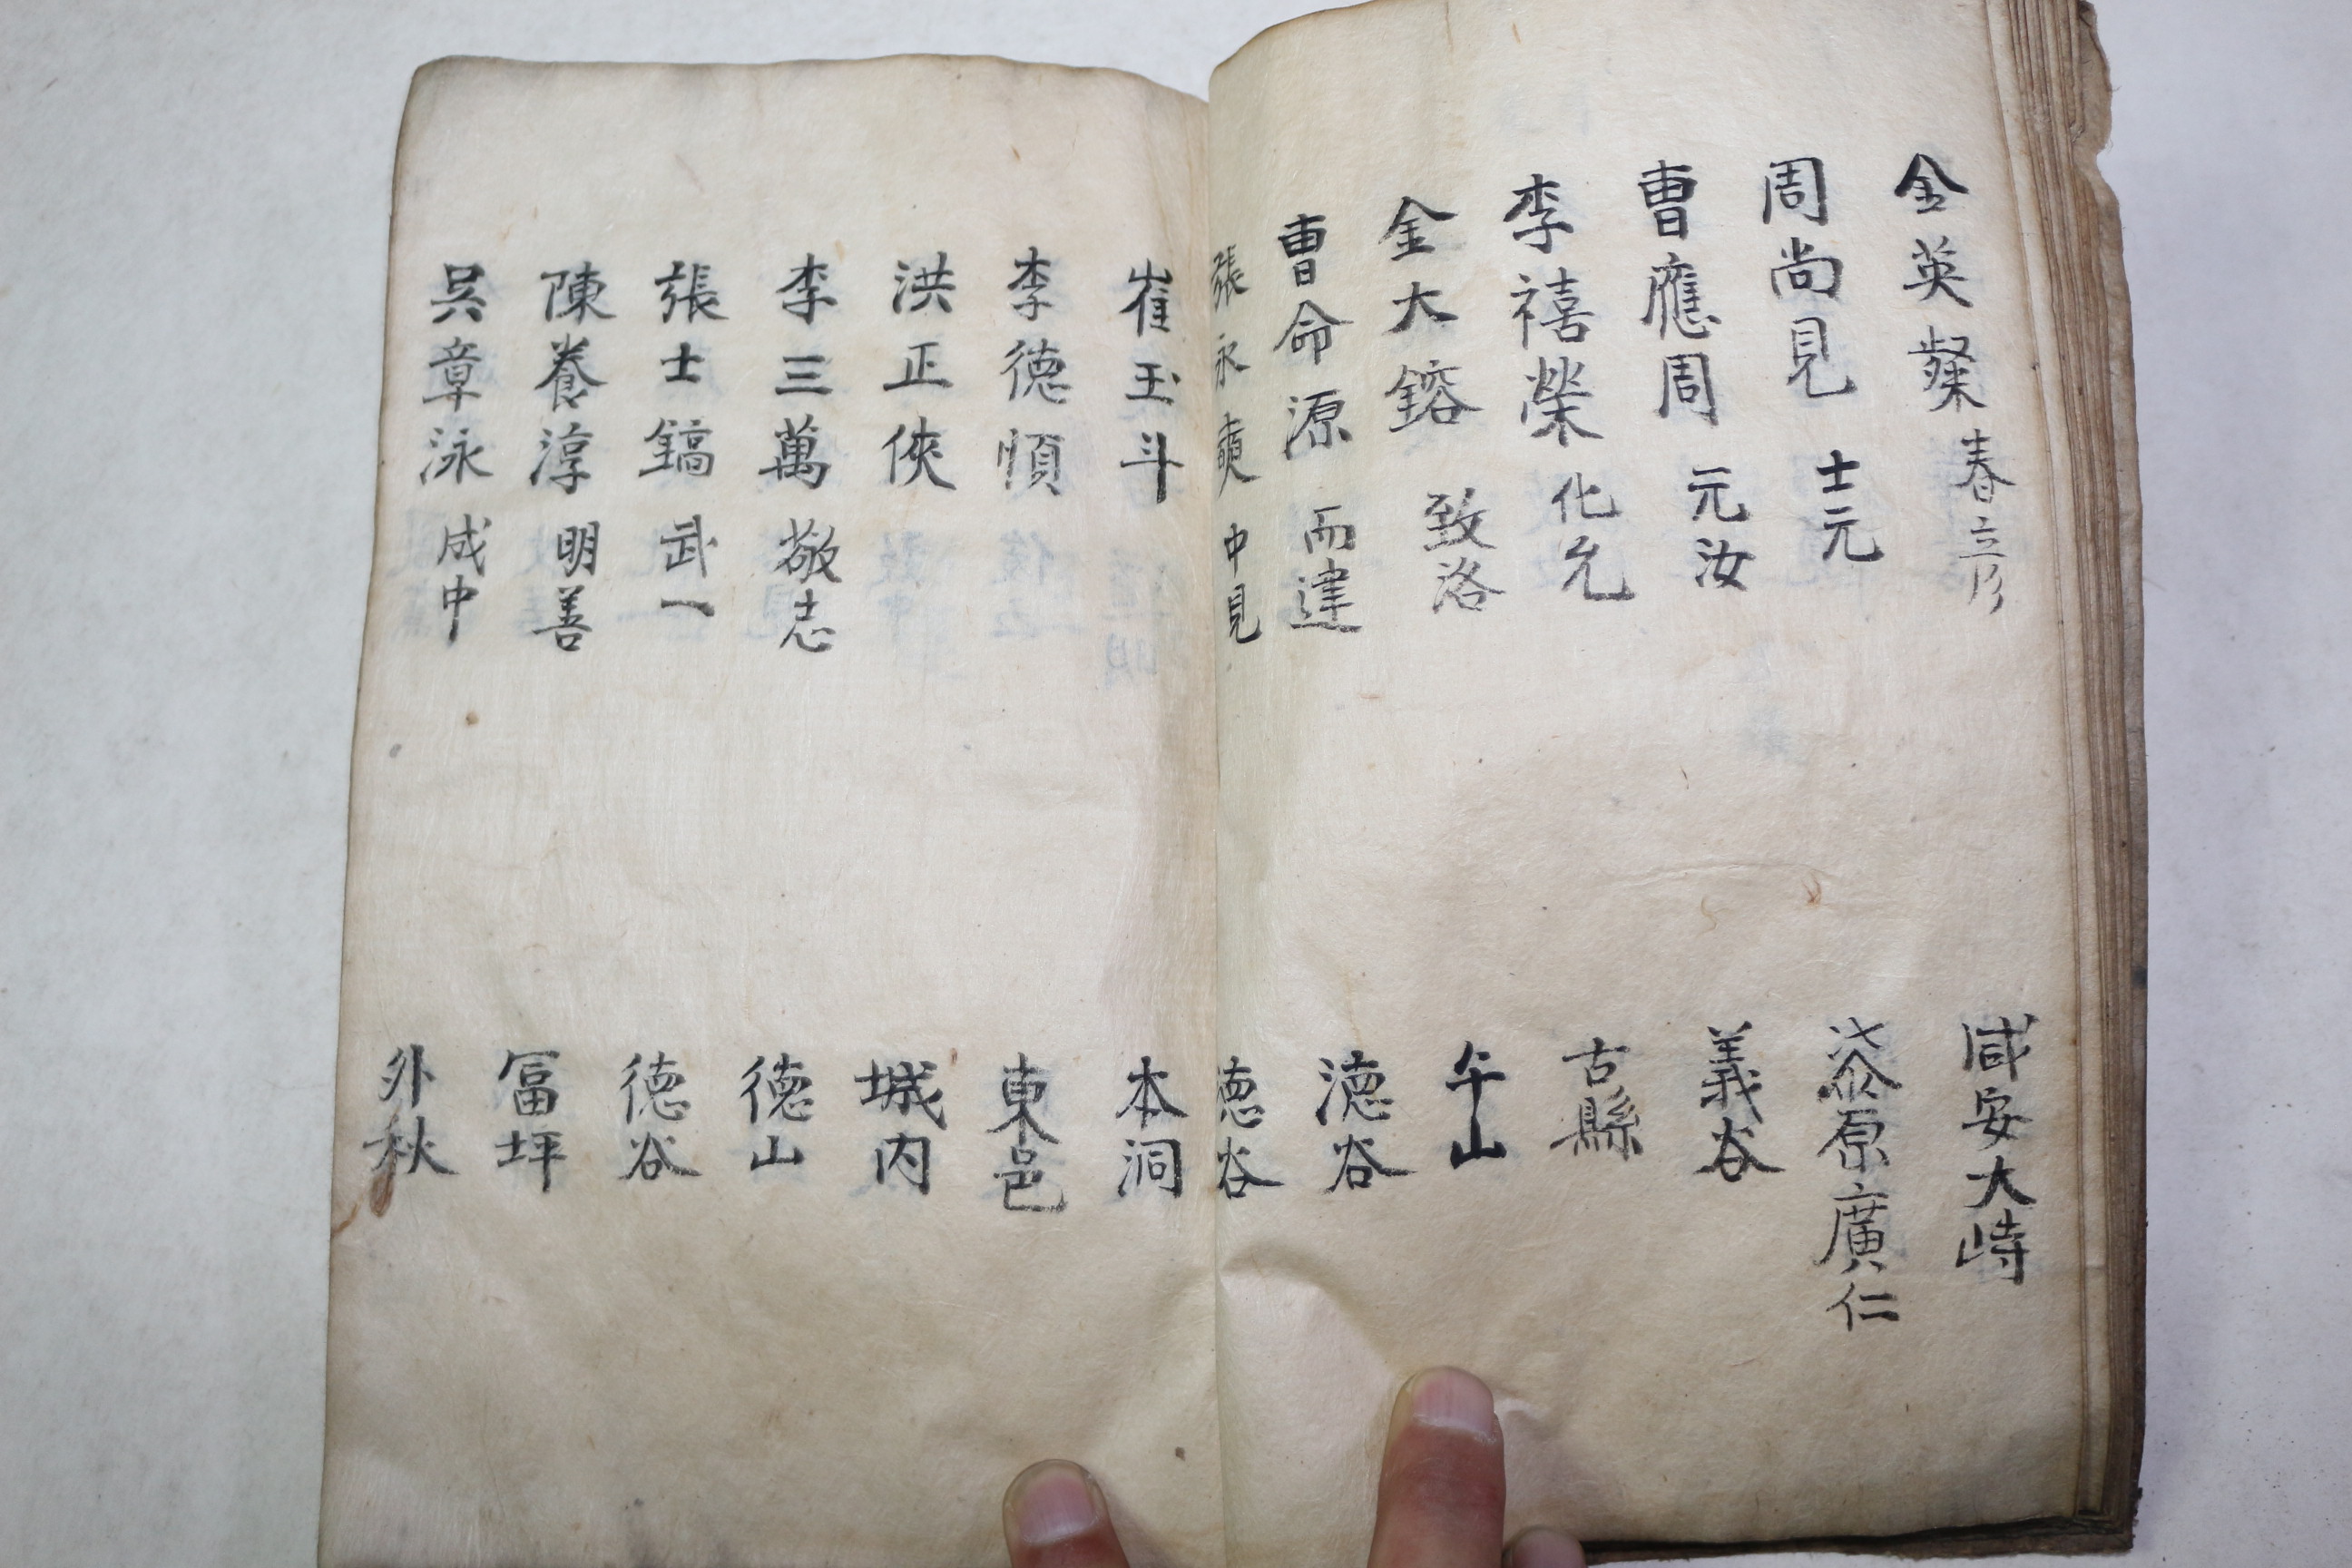 金英粲 春彦 咸安大峙
周尚見 士元 漆原廣仁
曺應周 元汝 義谷
李禧榮 化允 古縣
金大鎔 致洛 午山
曺命源 而達 德谷
張永 中見 德谷
崔玉斗 本洞
李德愼 東邑
洪正俠 城内
李三萬 敬志 德山
張士鎬 武一 德谷
陳養淳 明善 冨坪
吳章泳 成中 外秋